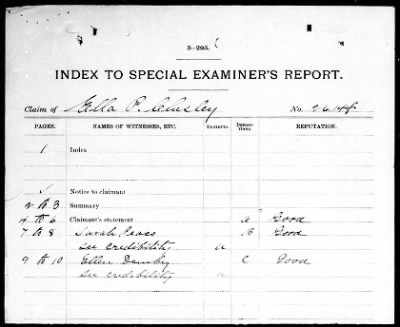 3—295
INDEX TO SPECIAL EXAMINER'S REPORT.
Claim of Ella P. No.
PAGES. NAMES OF WITNESSES, ETC. EXHIBITS. DEPOSITIONS. REPUTATION.
1 Index
Notice to claimant
2 to 3 Summary
4 to 6 Claimant's statement A Good
7 to 8 Sarah B Good
See credibility. a
9 to 10 Ellen C Good
See credibility a